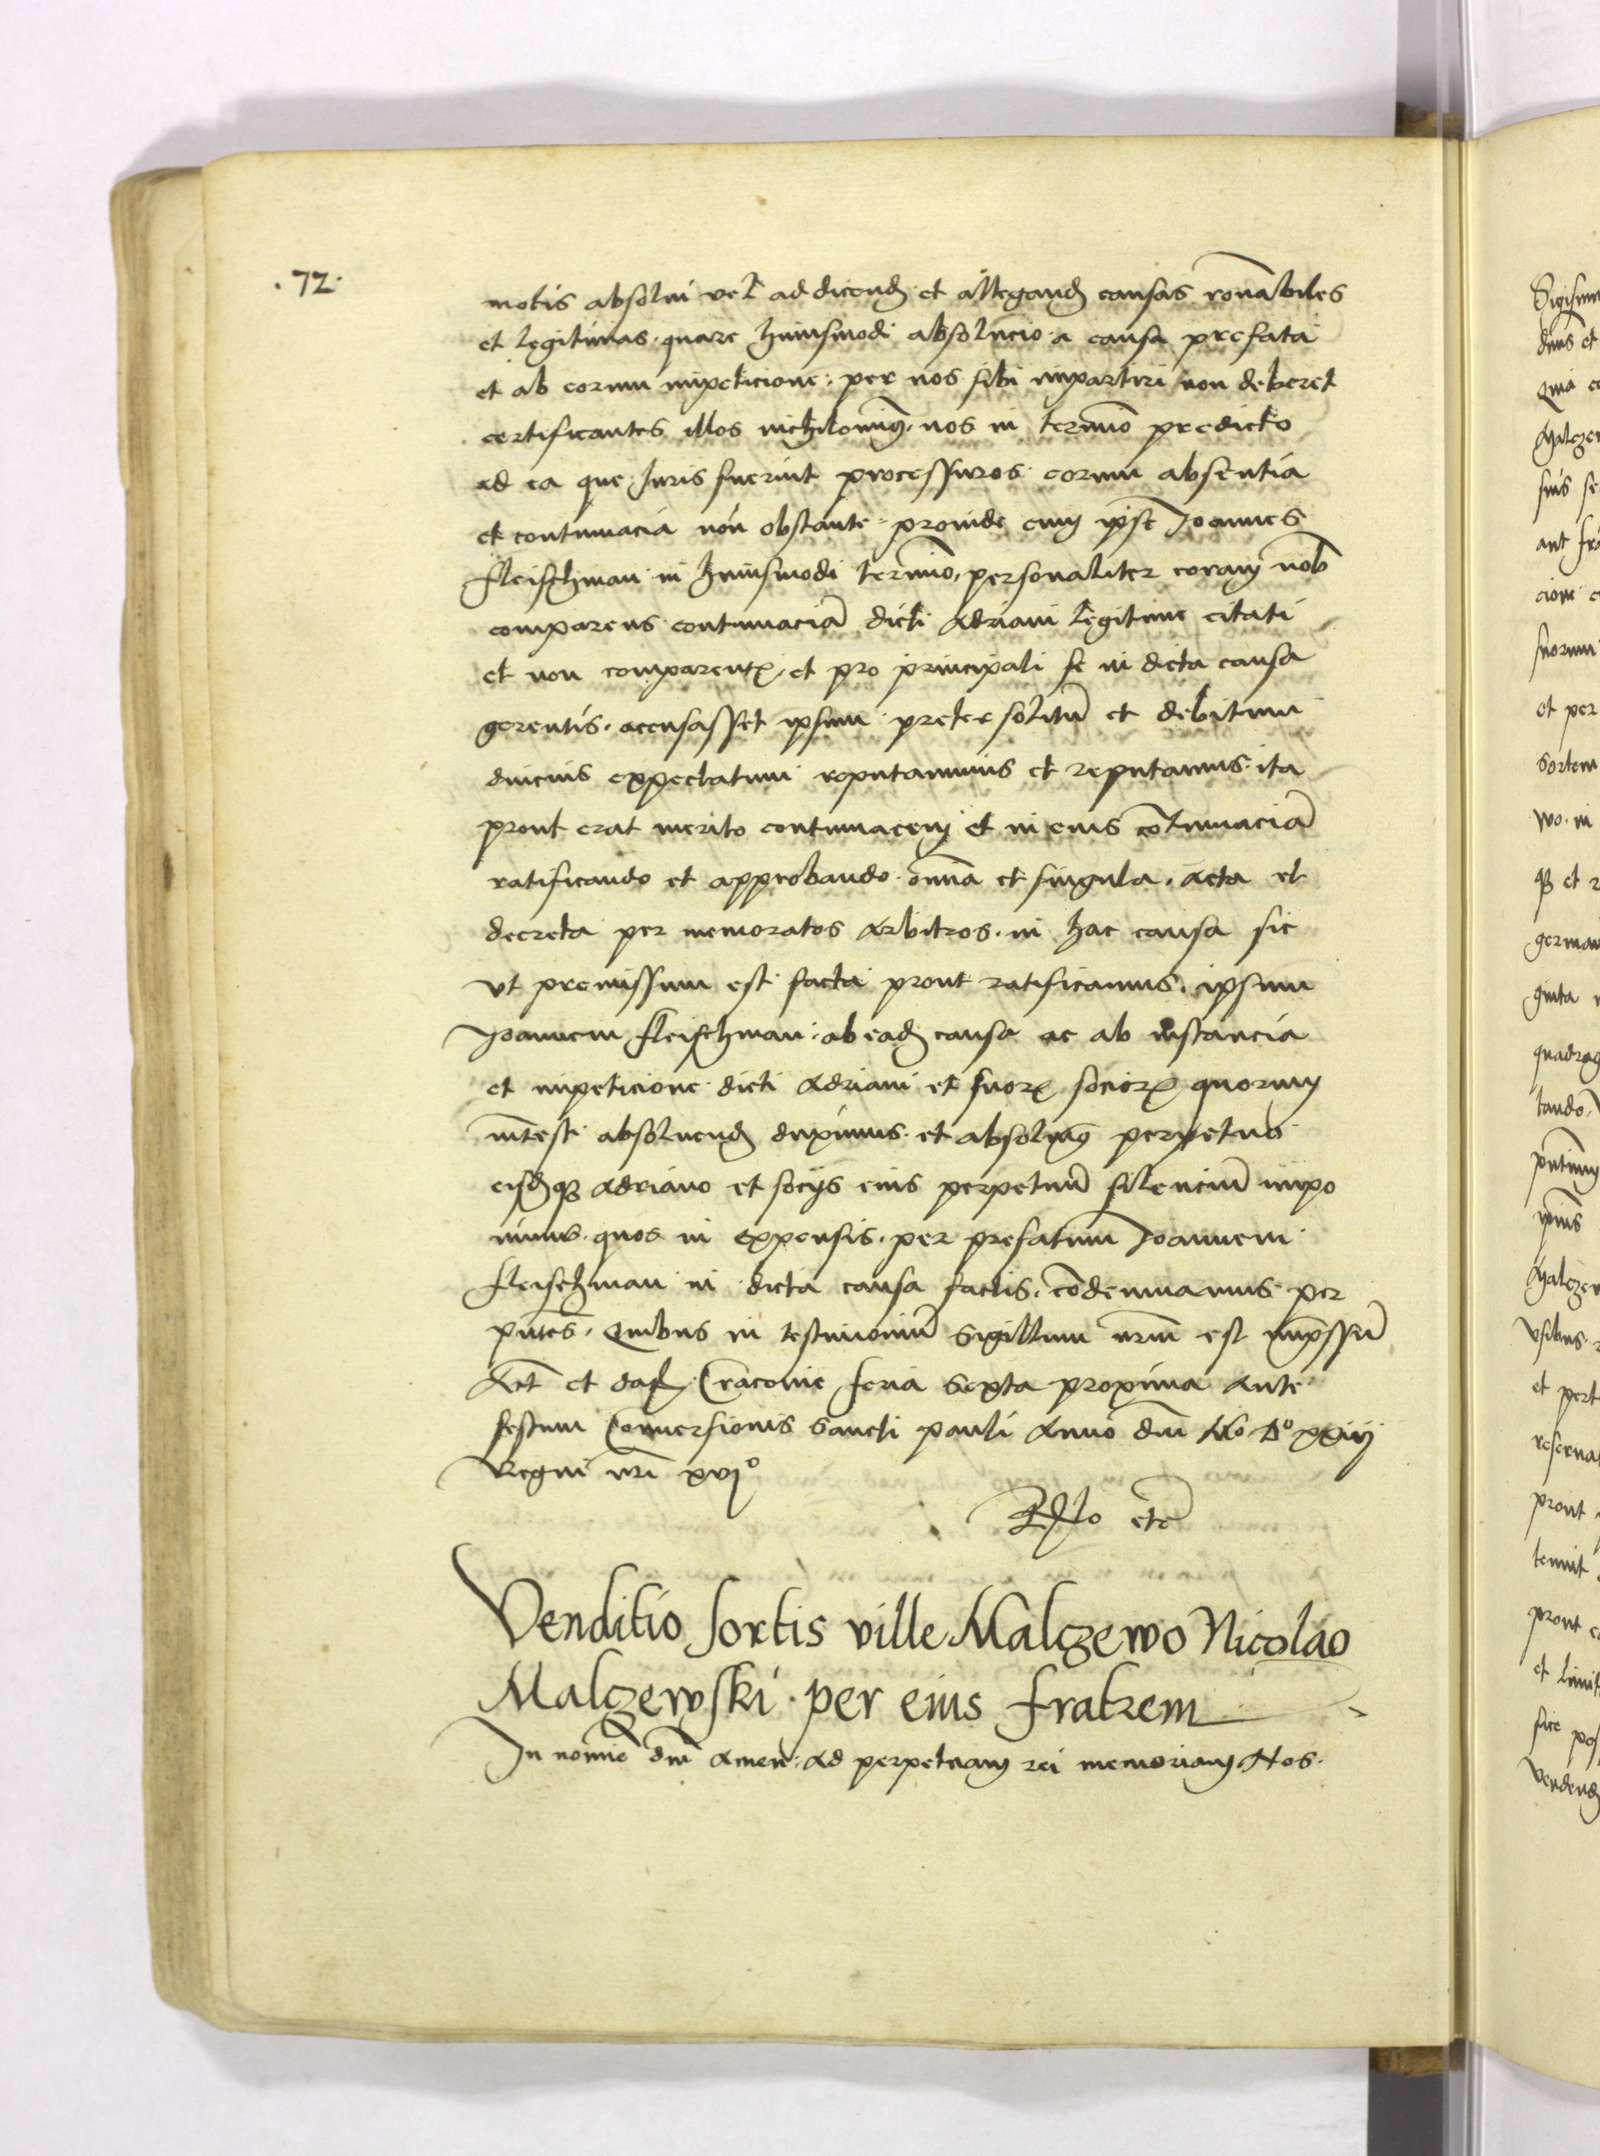 .72.
motis absolui vel ad dicend et allegand causas ronabiles
et legitimas. quare huiusmodi absolucio a causa prefata
et ab eorum impeticione. per nos sibi impartiri non deberet
certificantes illos nichilominus. nos in termino predicto
ad ea que Iuris fuerint processuros. eorum absentia
et contumacia non obstante. proinde cum ipse Joannes
fleischman in huiusmodi termino, personaliter coram nob
comparens contumaciam dicti Adriani legitime citati
et non comparentis. et pro principali se in dicta causa
gerentis. accusasset ipsum preter solitum et debitum
diucius expectatum reputauimus et reputamus. ita
prout erat merito contumacem et in eius contumaciam
ratificando et approbando omnia et singula. acta et
decreta per memoratos Arbitros. in hac causa sic
vt premissum est facta prout ratificamus. ipsum
Joannem fleischman. ab ead causa ac ab instancia
et impeticione dicti Adriani et suorum sociorum quorum
interest absoluend duximus. et absoluimus perpetuo
eisdemque Adriano et socijs eius perpetuum silencium impo
nimus. quos in expensis. per prefatum Joannem
fleischman in dicta causa factis. condemnamus per
pntes. Quibus in testimonium Sigillum nrm est impssum
Act et dat Cracouie feria Sexta proxima ante
festum Conuersionis Sancti pauli Anno dni Mo Do xxiij
Regni nri xvijo
Rlo etc
Venditio sortis ville Malczewo Nicolao
Malczewski. per eius fratrem
In nomine dni amen. Ad perpetuam rei memoriam. Nos.